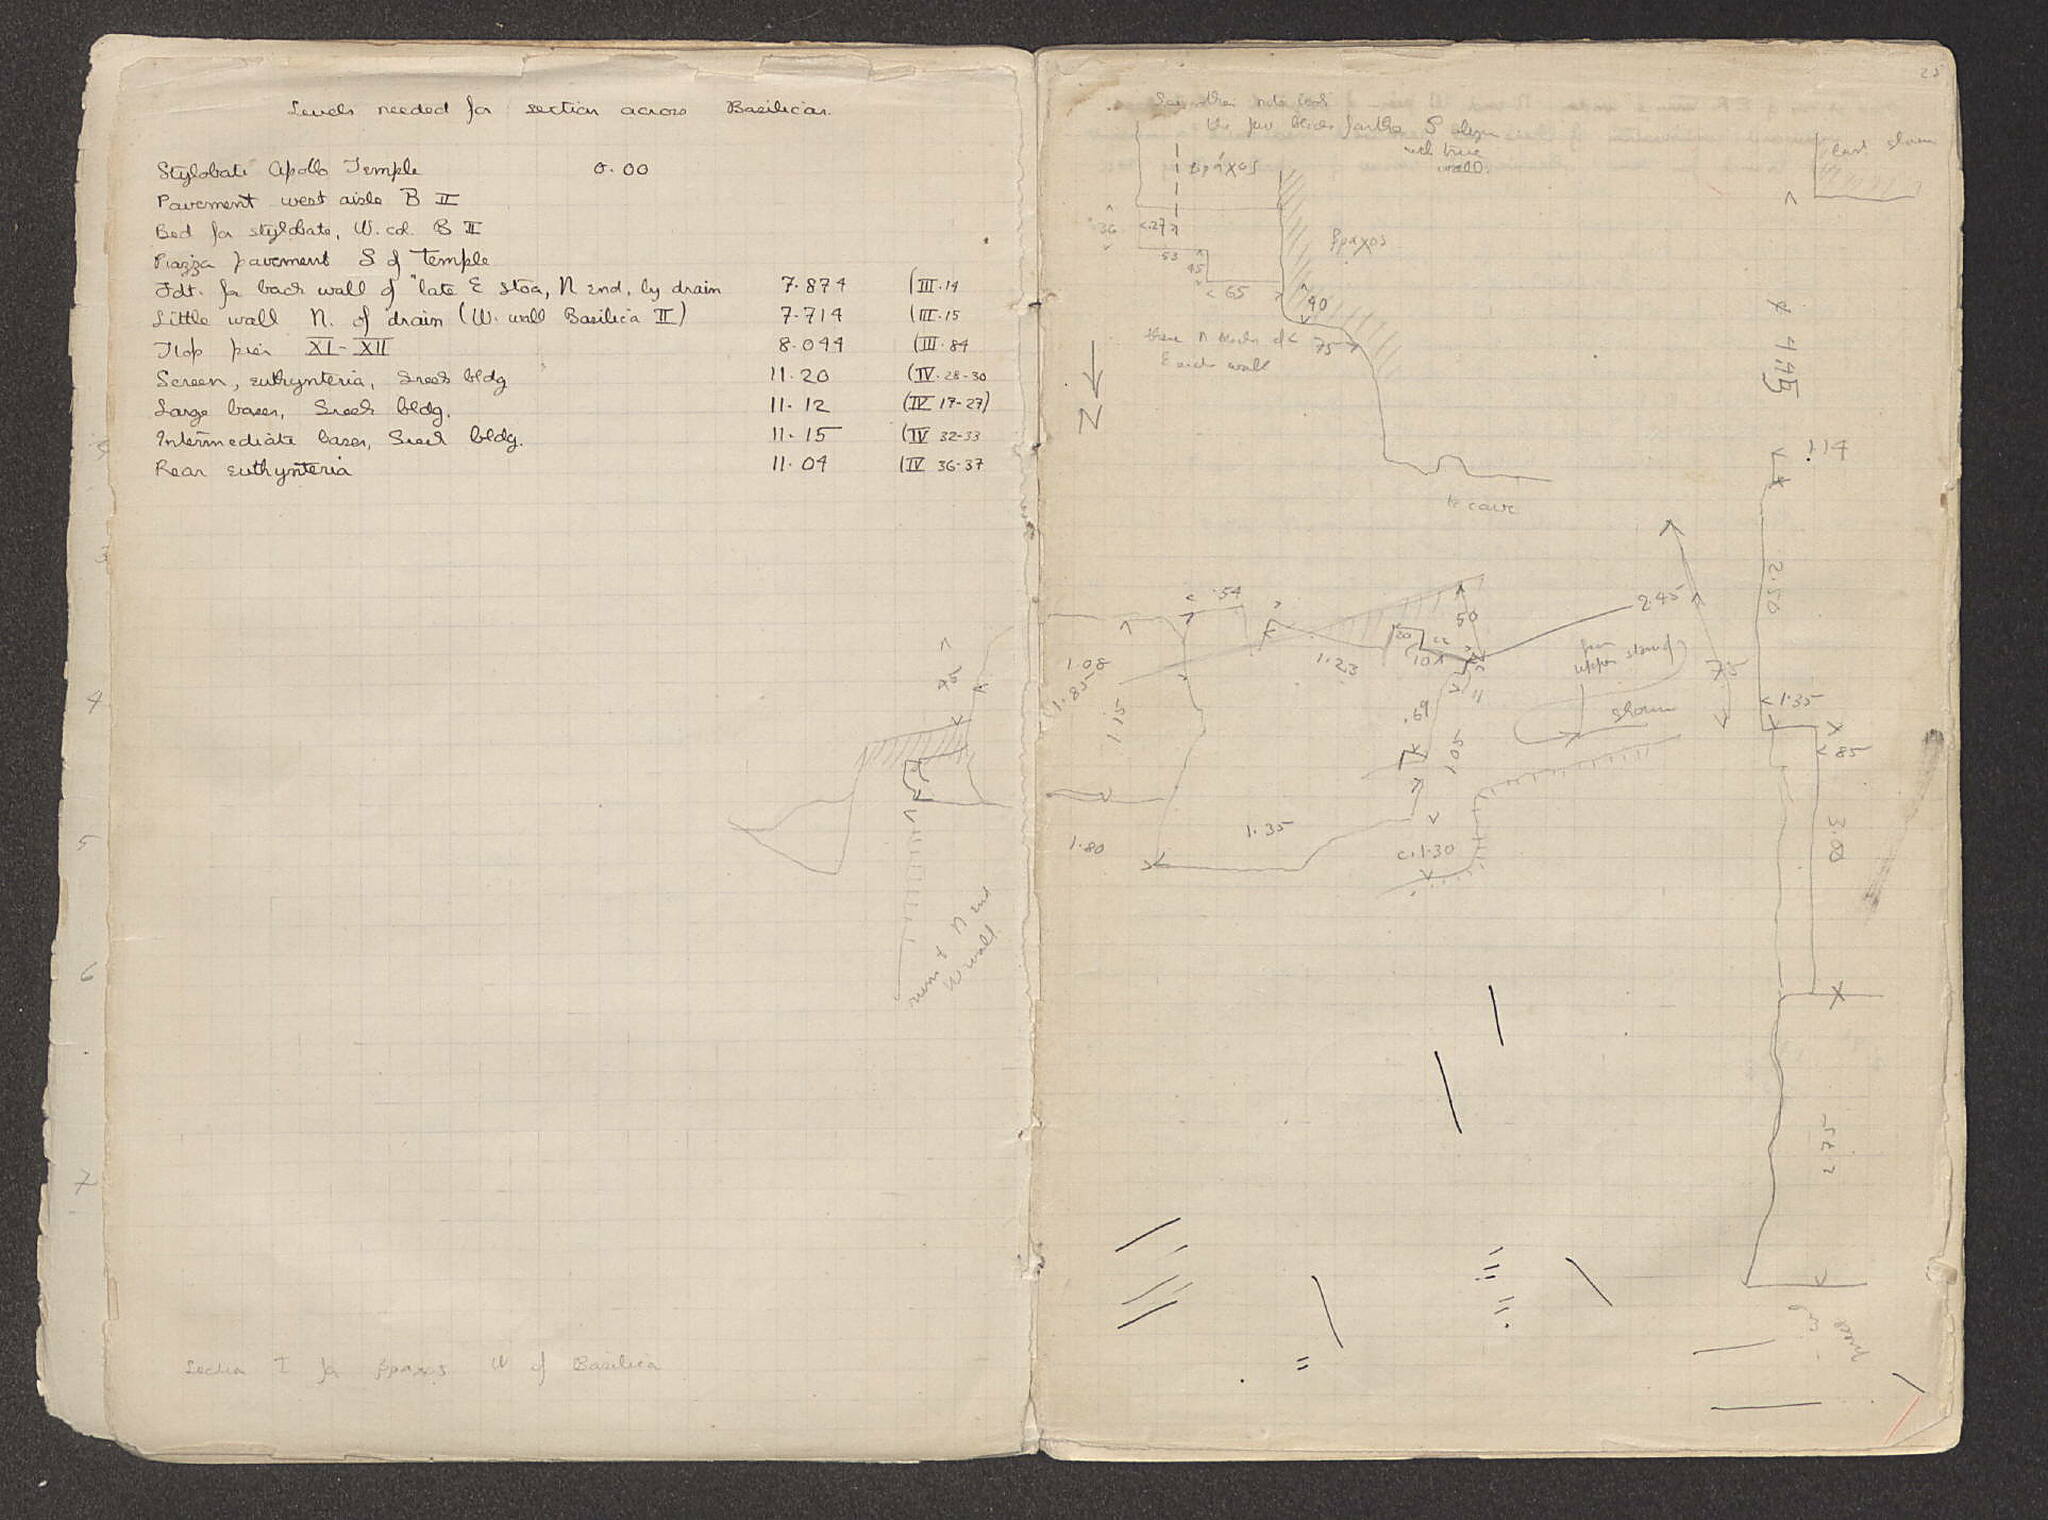 Levels needed for section across Basilicas.
Stylobate Apollo Temple 0.00
Pavement west aisle B II
Bed for stylobate, W. col. B II
Piazza pavement S of Temple
Fdt. for back wall of "late E stoa, N end, by drain 7.874 (III.14
Little wall N. of drain (W. wall Basilica II) 7.714 (III.15
Top pier XI-XII 8.044 (III.84
Screen, euthynteria, Greek bldg 11.20 (IV.28-30
Large bases, Greek bldg. 11.12 (IV 17-27)
Intermediate bases, Greek bldg. 11.15 (IV 32-33
Rear euthynteria 11.04 (IV 36-37
3
4
5
6
7
75
N end
W wall
Section I for βραχος W of Basilica
25
S
with true
wall.
last shown
βράχος
36
.27
53
45
65
βραχος
40
75
N blocks of
E side wall
N
to cave
4.45
1.14
2.50
1.35
.85
3.00
2.75
.54
50
20
2.45
1.08
1.85
1.15
1.23
11
.69
1.05
75
upper
shown
1.80
1.35
c.1.30